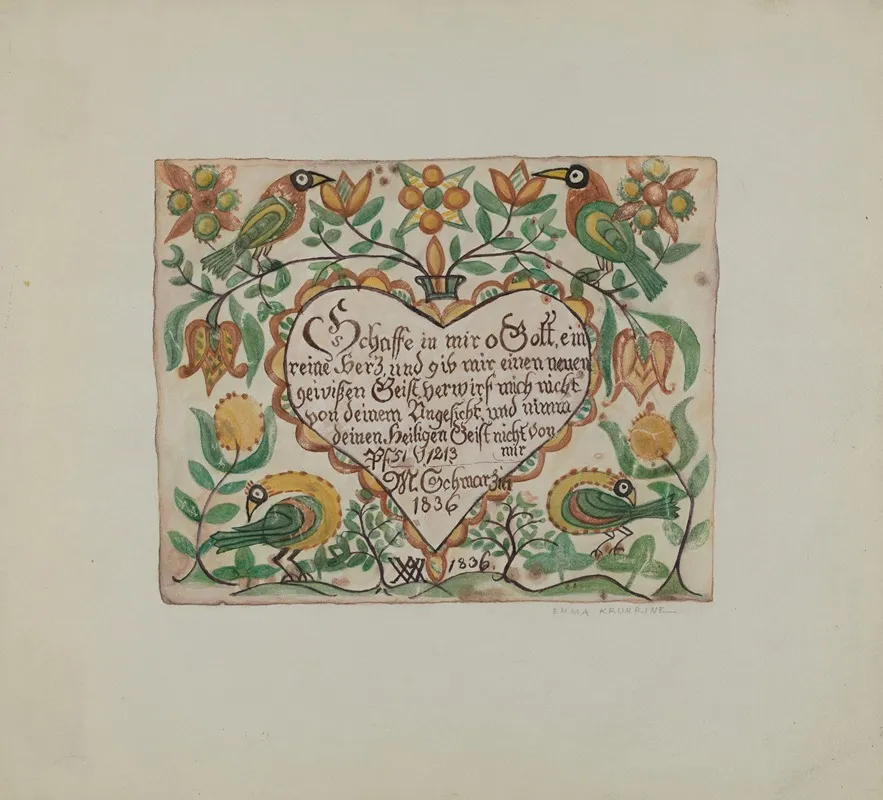 Schaffe in mir o Gott, ein
reine Herz, und gib mir einen neuen
gewißen Geist, verwirf mich nicht
von deinem Angesicht, und nimm
deinen Heiligen Geist nicht von
mir
Ps 51 V 1213
M. Schwarzin
1836
1836.
EMMA KRUMRINE